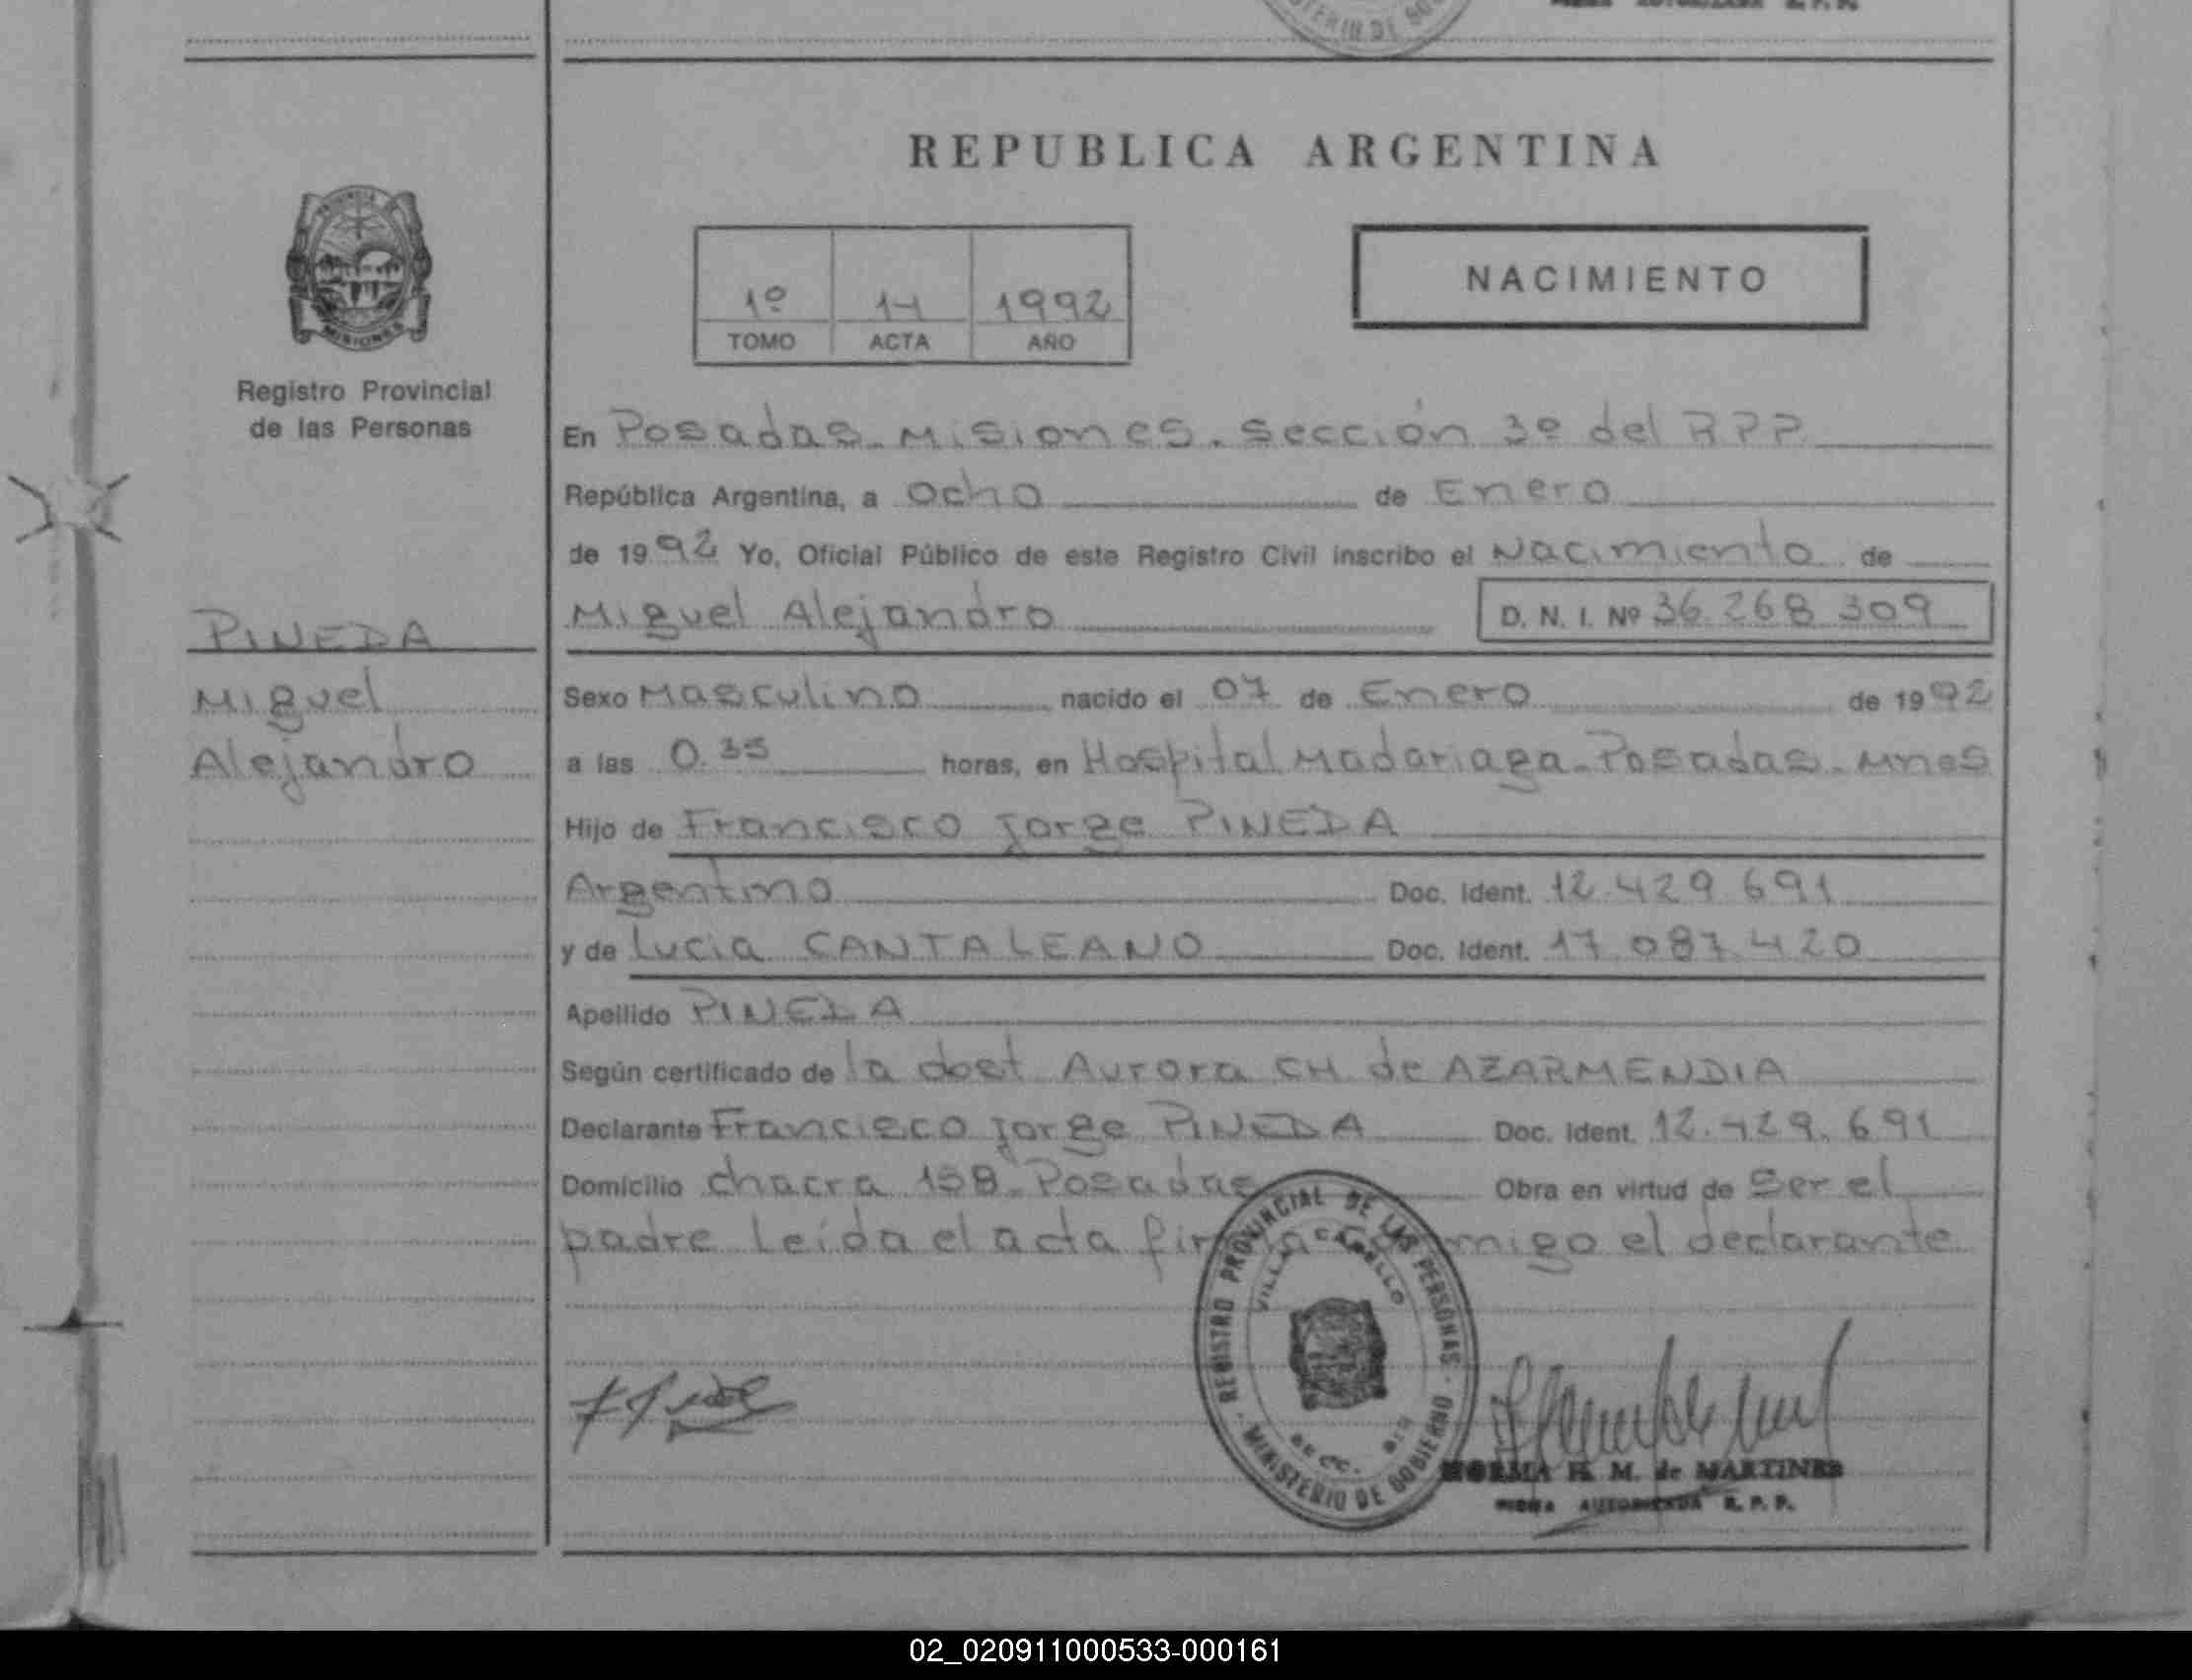 REPUBLICA ARGENTINA
PROVINCIA DE
MISIONES
Registro Provincial
de las Personas
1º 14 1992
TOMO ACTA AÑO
NACIMIENTO
En Posadas. Misiones. Sección 3º del RPP
República Argentina, a Ocho de Enero
de 1992 Yo, Oficial Público de este Registro Civil inscribo el Nacimiento de
PINEDA
Miguel
Alejandro
Miguel Alejandro D. N. I. Nº 36.268.309
Sexo Masculino nacido el 07 de Enero de 1992
a las 0.35 horas, en Hospital Madariaga. Posadas. Mnes
Hijo de Francisco Jorge PINEDA
Argentino Doc. Ident. 12.429.691
y de Lucia CANTALEANO Doc. Ident. 17.087.420
Apellido PINEDA
Según certificado de la obst Aurora CH. de AZARMENDIA
Declarante Francisco Jorge PINEDA Doc. Ident. 12.429.691
Domicilio chacra 158. Posadas Obra en virtud de Ser el
padre Leída el acta firma conmigo el declarante
REGISTRO PROVINCIAL DE LAS PERSONAS
MINISTERIO DE GOBIERNO
VILLA CABELLO
NORMA H. M. de MARTINES
FIRMA AUTORIZADA R. P. P.
02_020911000533-000161